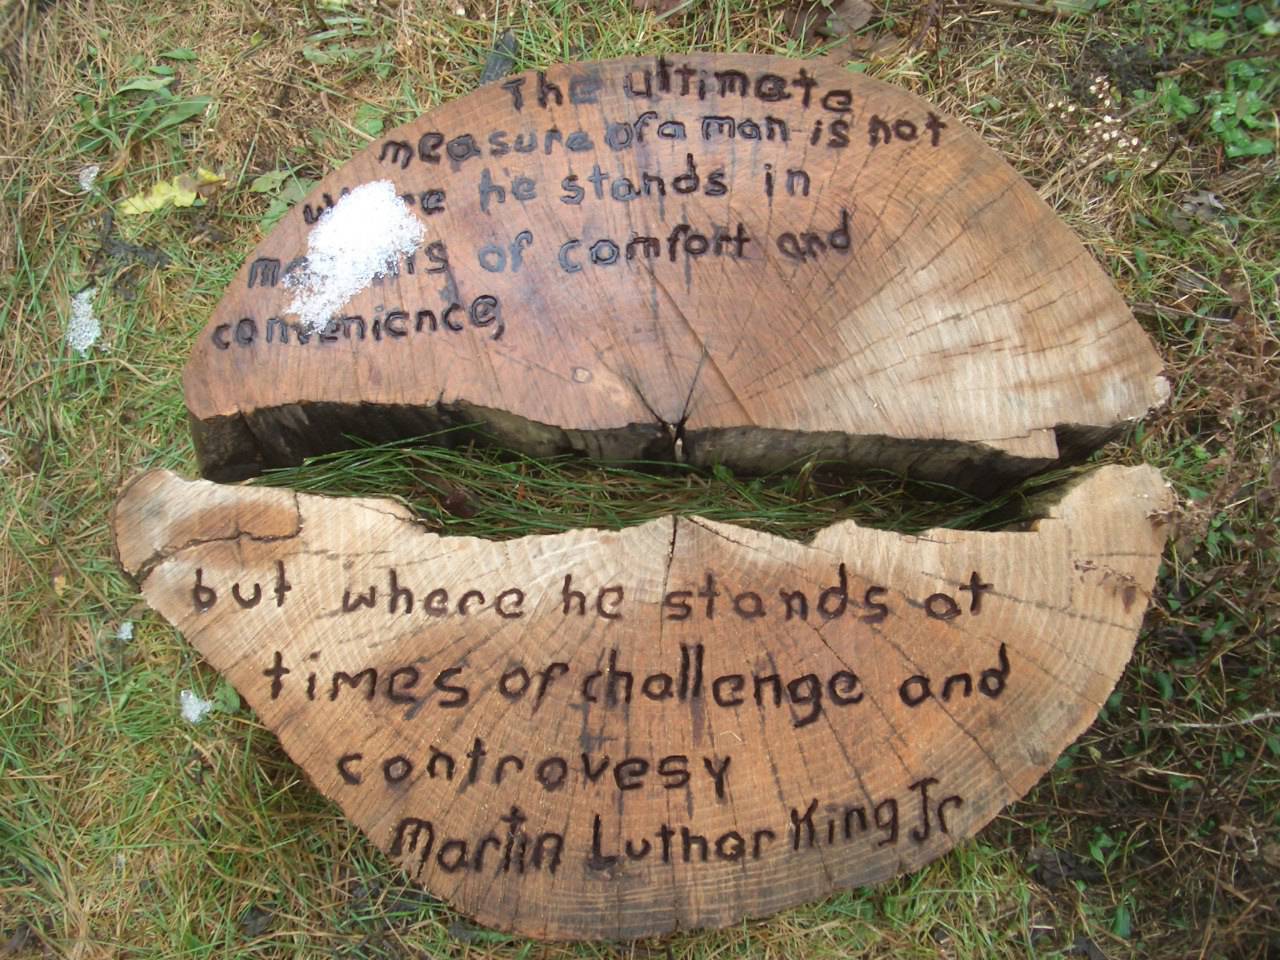 The ultimate
measure of a man is not
where he stands in
moments of comfort and
convenience,
but where he stands at
times of challenge and
controvesy
Martin Luther King Jr